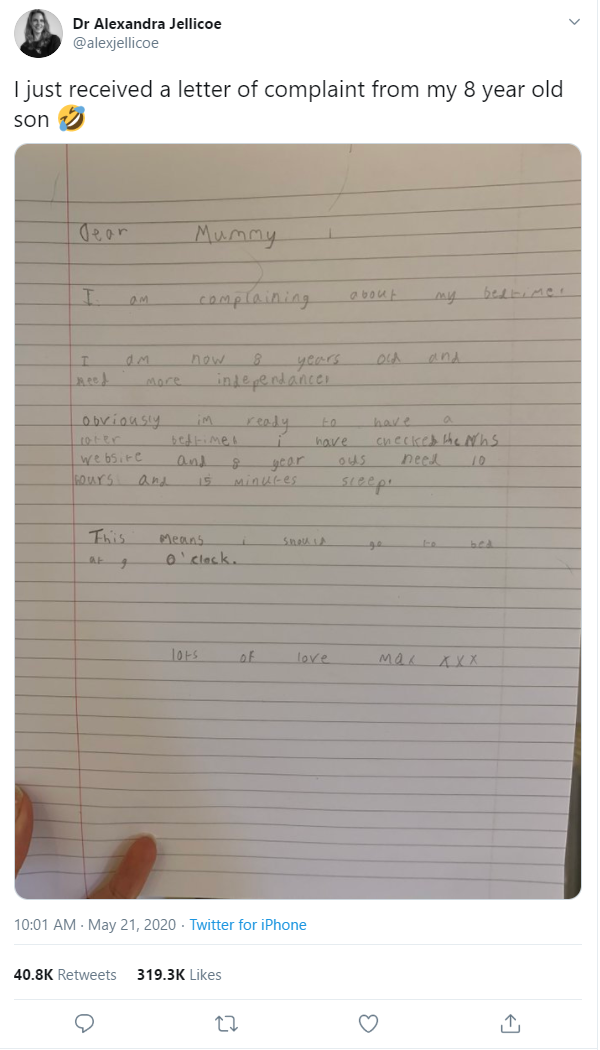 Dr Alexandra Jellicoe
@alexjellicoe
I just received a letter of complaint from my 8 year old
son 🤣
Dear Mummy
I am complaining about my bedtime.
I am now 8 years old and
need more independance.
obviously im ready to have a
later bedtime. i have checked the Nhs
website and 8 year olds need 10
hours and 15 minutes sleep.
This means i should go to bed
at 9 O'clock.
lots of love max xxx
10:01 AM · May 21, 2020 · Twitter for iPhone
40.8K Retweets 319.3K Likes